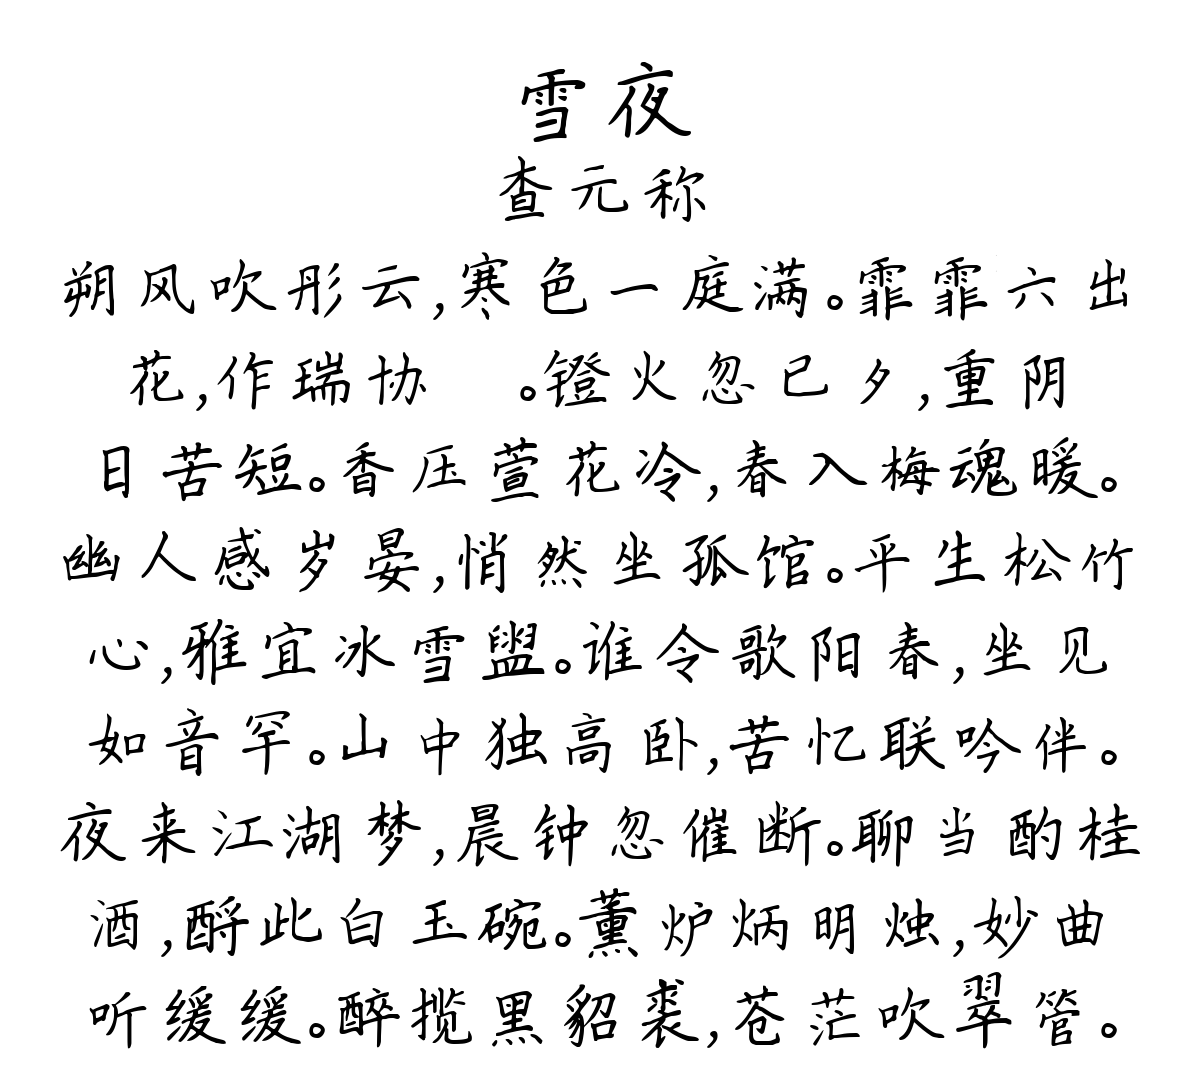 雪夜
查元称
朔风吹彤云,寒色一庭满。霏霏六出
花,作瑞协 。镫火忽已夕,重阴
日苦短。香压萱花冷,春入梅魂暖。
幽人感岁晏,悄然坐孤馆。平生松竹
心,雅宜冰雪盥。谁令歌阳春,坐见
如音罕。山中独高卧,苦忆联吟伴。
夜来江湖梦,晨钟忽催断。聊当酌桂
酒,酹此白玉碗。薰炉炳明烛,妙曲
听缓缓。醉揽黑貂裘,苍茫吹翠管。